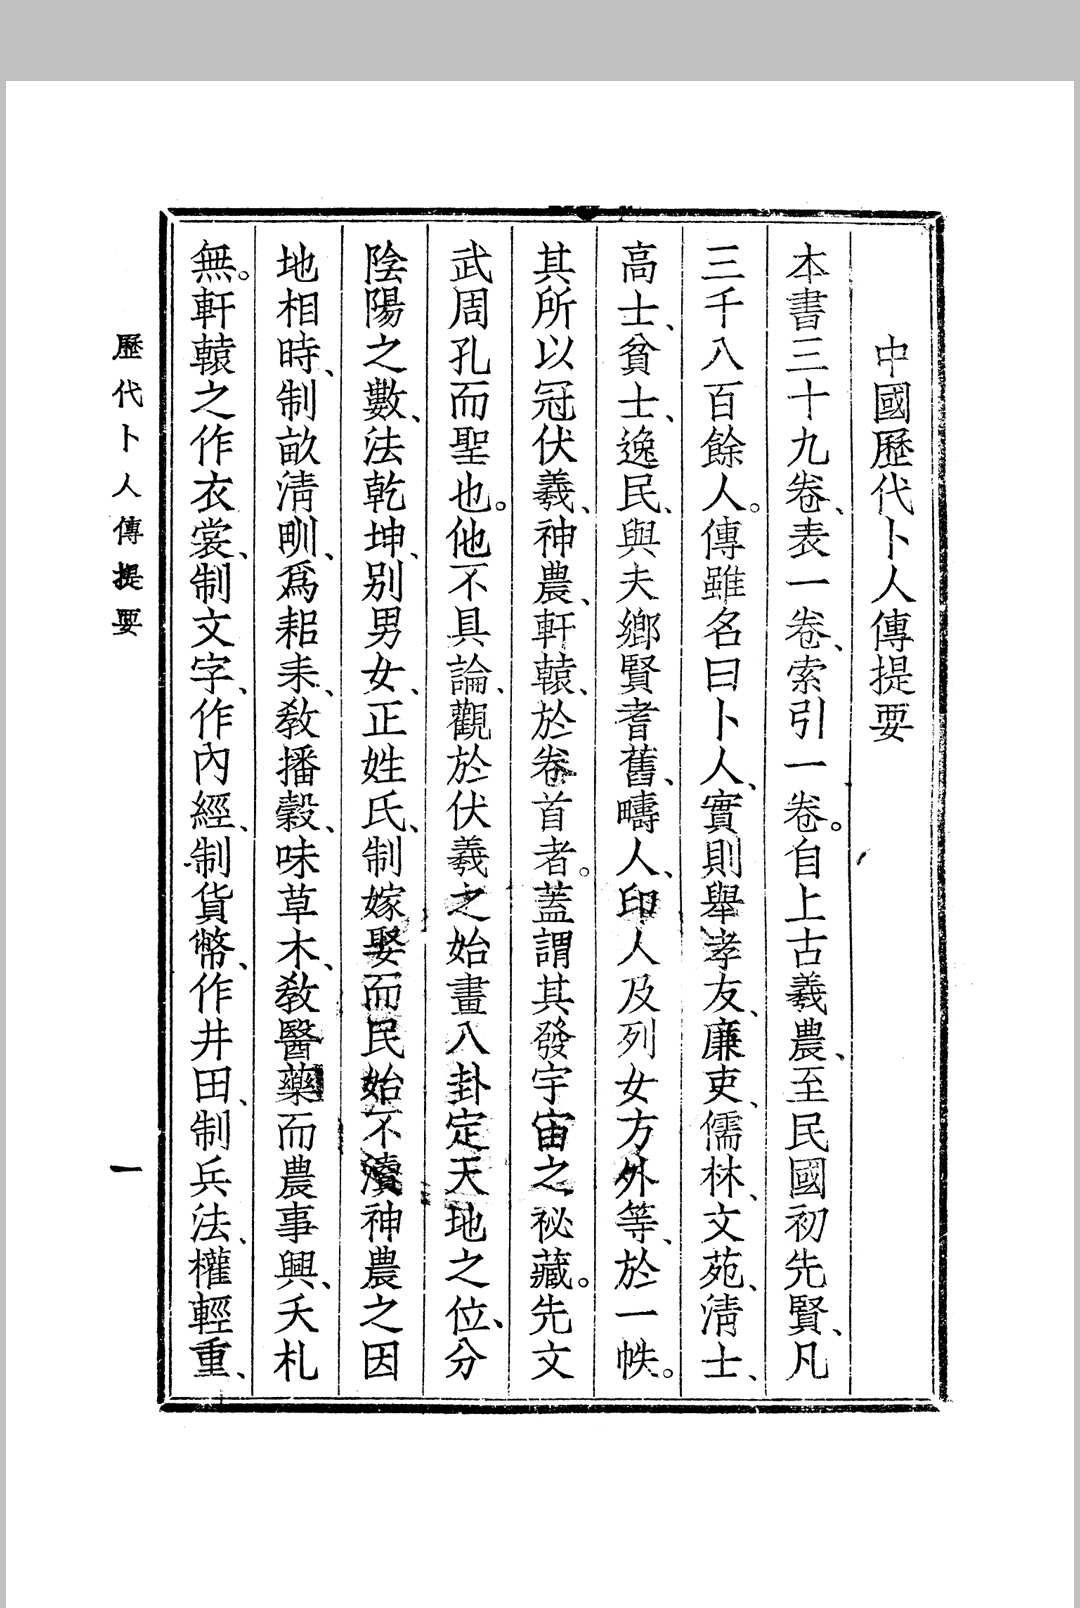 中國歷代卜人傳提要
本書三十九卷、表一卷、索引一卷。自上古羲農、至民國初先賢、凡
三千八百餘人。傳雖名曰卜人、實則舉孝友、廉吏、儒林、文苑、清士、
高士、貧士、逸民、與夫鄉賢耆舊、疇人、印人及列女方外等、於一帙。
其所以冠伏羲、神農、軒轅、於卷首者。蓋謂其發宇宙之祕藏。先文
武周孔而聖也。他不具論、觀於伏羲之始畫八卦定天地之位、分
陰陽之數、法乾坤、別男女、正姓氏、制嫁娶而民始不瀆神農之因
地相時、制畝清甽、爲耜耒、教播穀、味草木、教醫藥而農事興、夭札
無。軒轅之作衣裳、制文字、作內經、制貨幣、作井田、制兵法、權輕重、
歷代卜人傳提要
一